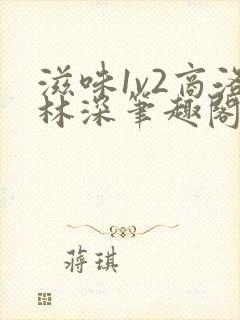 滋味1v2高洛
林深笔趣阁
蒋琪